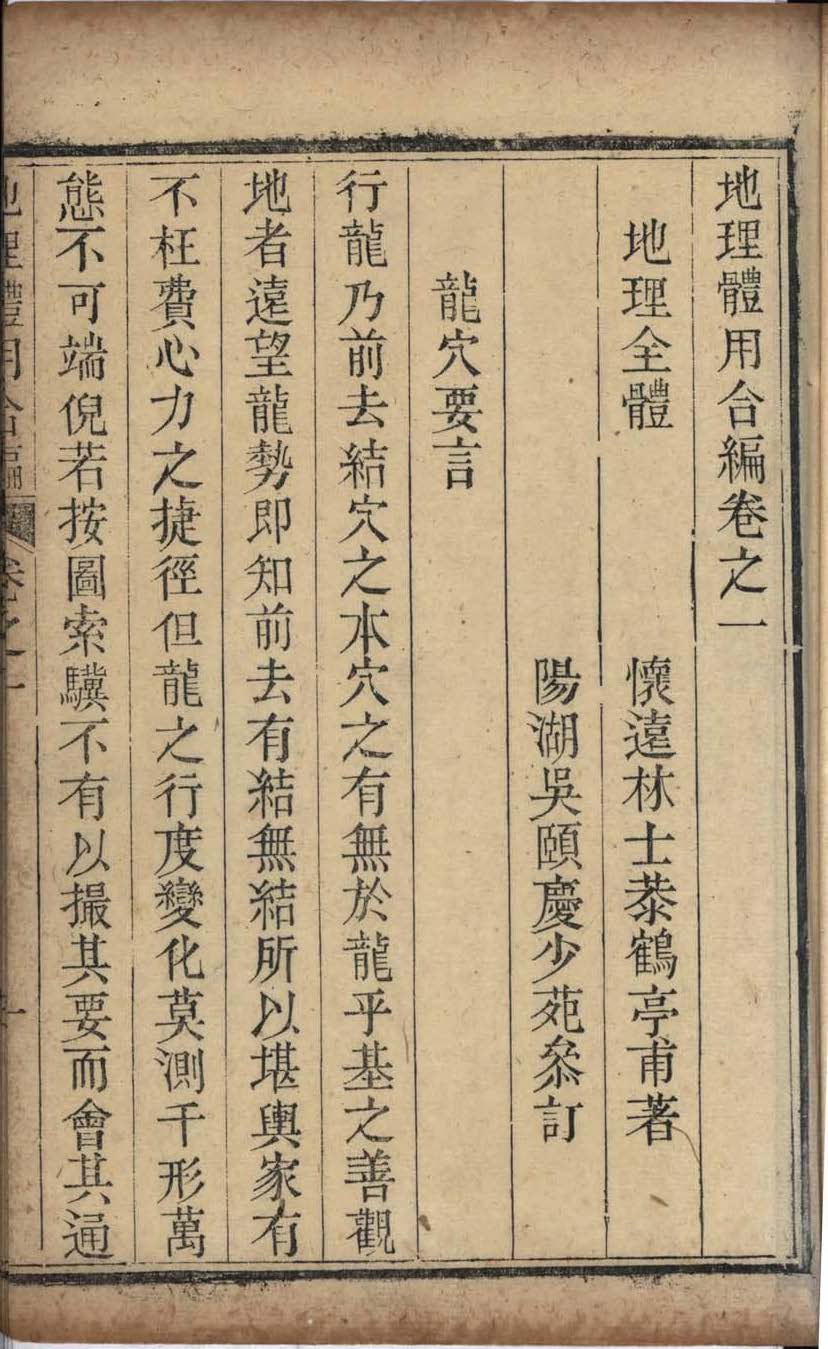 地理體用合編卷之一
地理全體 懷遠林士菾鶴亭甫著
陽湖吳頤慶少苑叅訂
龍穴要言
行龍乃前去結穴之本穴之有無於龍乎基之善觀
地者遠望龍勢即知前去有結無結所以堪輿家有
不枉費心力之捷徑但龍之行度變化莫測千形萬
態不可端倪若按圖索驥不有以撮其要而會其通
地理體用合編 卷之一 一